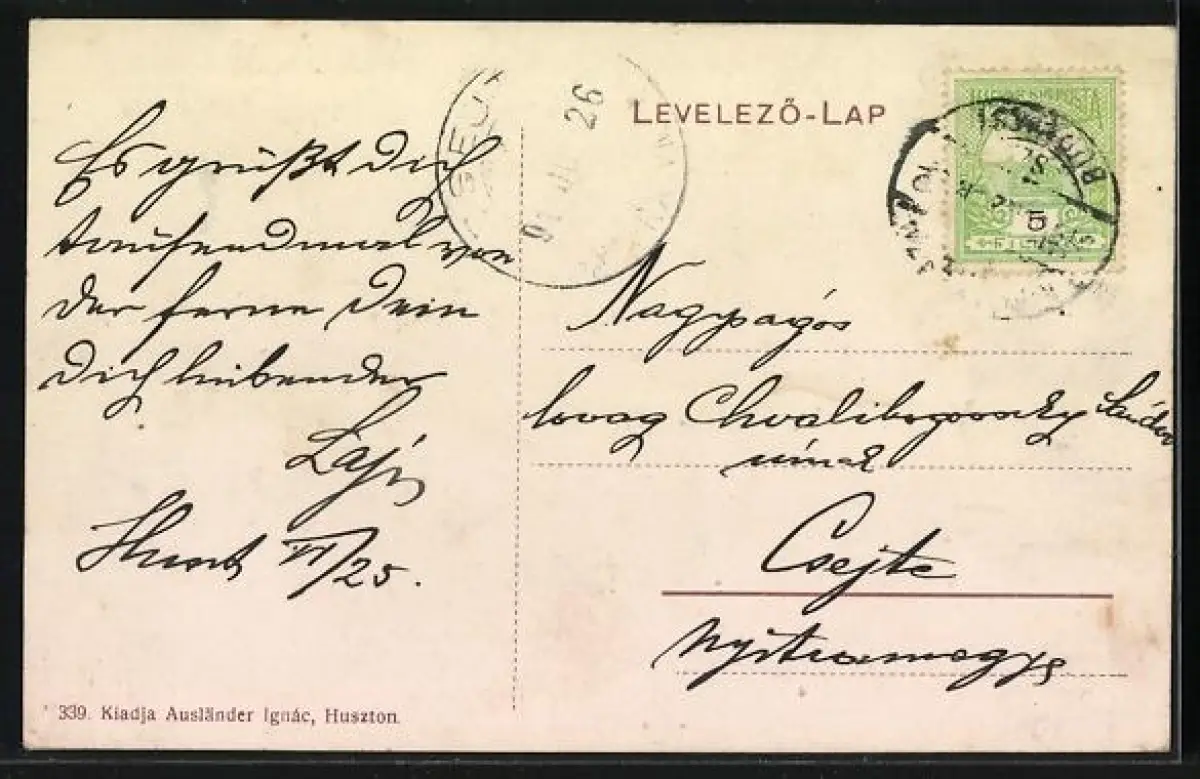 LEVELEZŐ-LAP
Es grüßt Dich
tausendmal von
der ferne Dein
Dich liebender
Lajos
Huszt VI/25.
Nagyságos
lovag Chvalibogovszky Sándor
úrnak
Csejte
Nyitramegye
339. Kiadja Ausländer Ignác, Huszton.
26
BUDAPEST
5